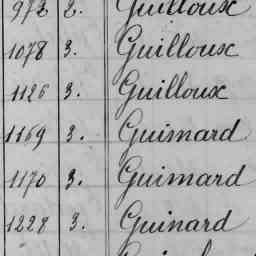 972 2. Guilloux
1078 3. Guilloux
1126 3. Guilloux
1169 3. Guimard
1170 3. Guimard
1228 3. Guinard